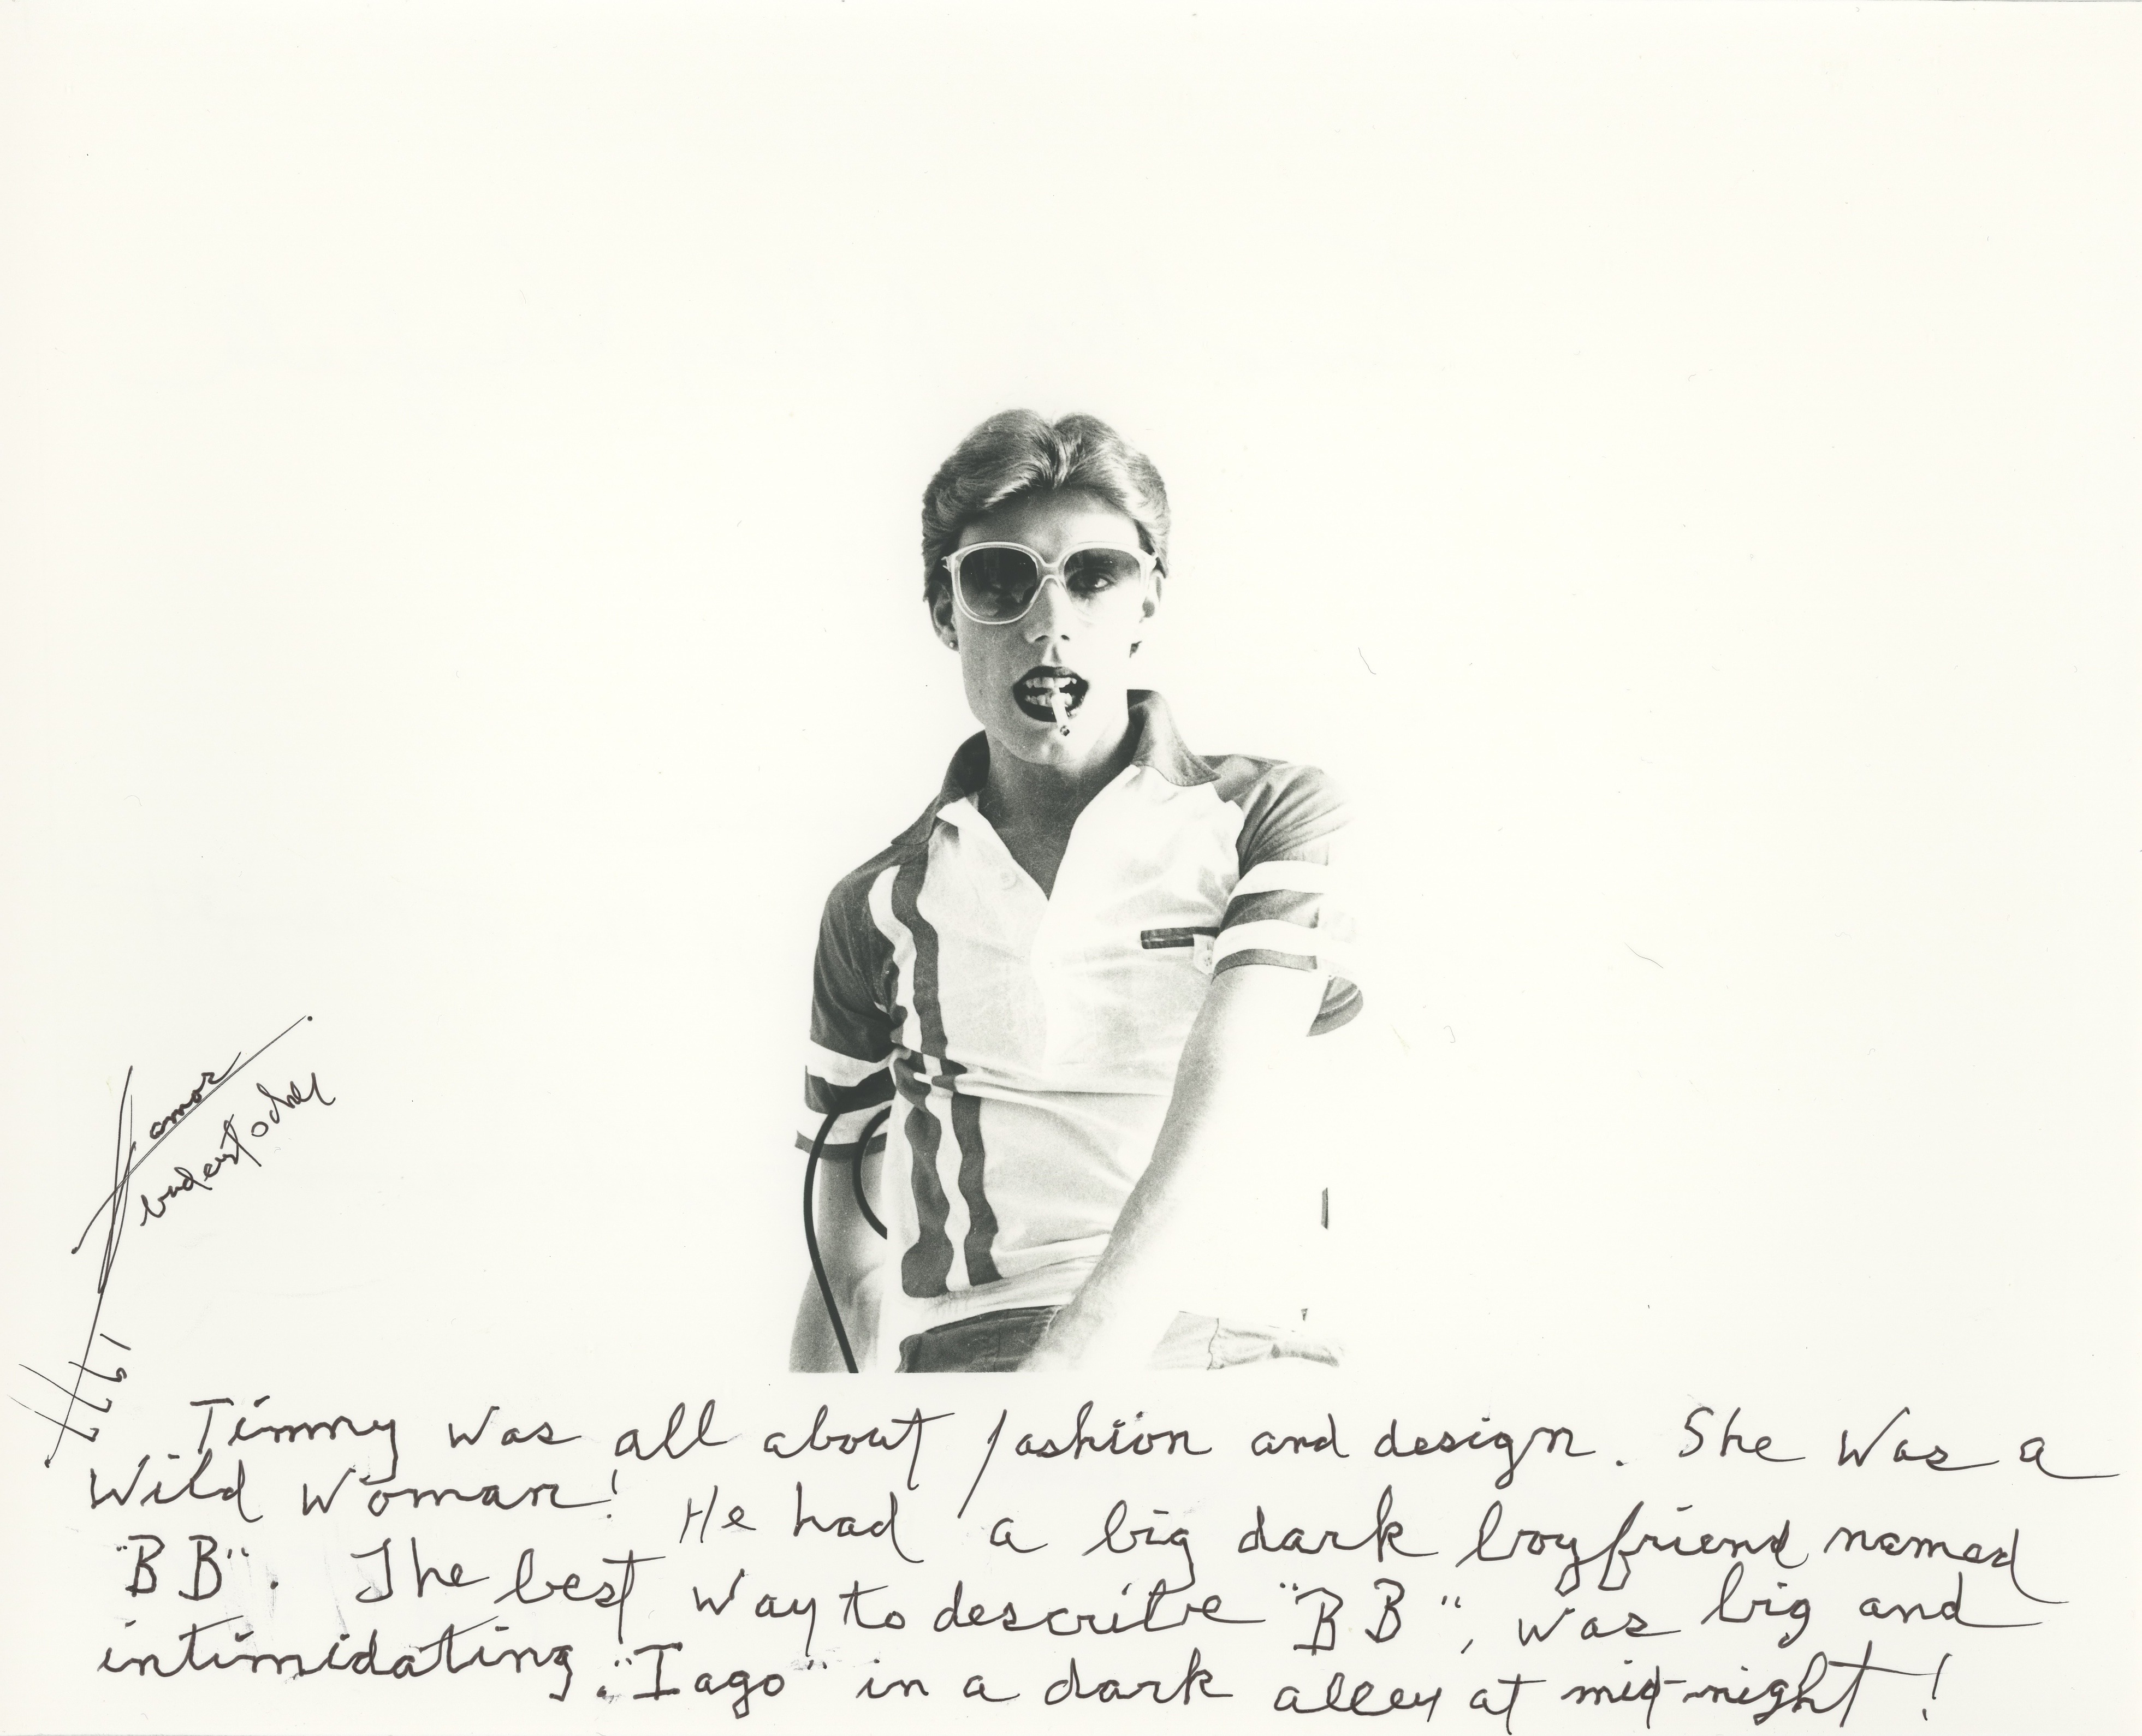 1977
Timmy was all about fashion and design. She was a
Wild Woman! He had a big dark boyfriend named
"BB". The best way to describe "BB", was big and
intimidating. "Iago" in a dark alley at mid-night!